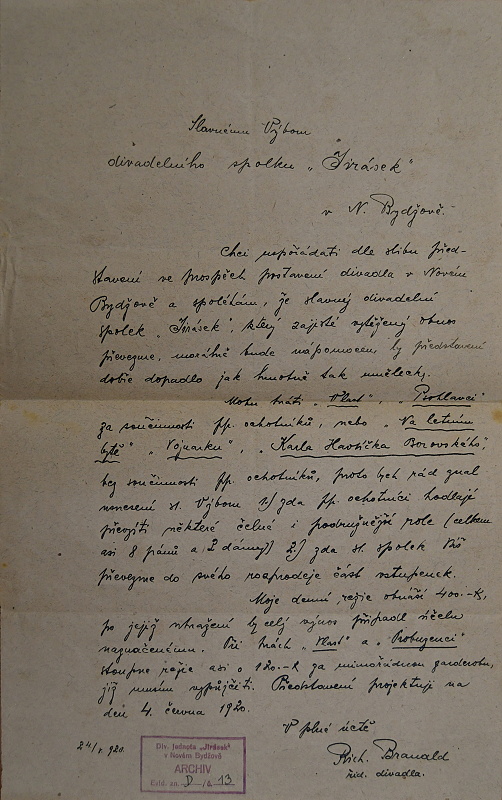 Slavnému Výboru
divadelního spolku „Jirásek"
v N. Bydžově.
Chci uspořádati dle slibu před-
stavení ve prospěch postavení divadla v Novém
Bydžově a spoléhám, že slavný divadelní
spolek „Jirásek", který zajisté vytěžený obnos
převezme, morálně bude nápomocen, by představení
dobře dopadlo jak hmotně tak umělecky.
Mohu hráti „Vlast", „Psohlavci"
za součinnosti pp. ochotníků, nebo „Na letním
bytě" „Vojnarku", „Karla Havlíčka Borovského",
bez součinnosti pp. ochotníků, proto bych rád znal
usnesení sl. Výboru 1) zda pp. ochotníci hodlají
převzíti některé čelné i podružnější role (celkem
asi 8 pánů a 2 dámy) 2) zda sl. spolek Váš
převezme do svého rozprodeje část vstupenek.
Moje denní režie obnáší 400.-K,
po jejíž uhražení by celý výnos připadl účelu
naznačenému. Při hrách „Vlast" a
stoupne režie asi o 120.-K za mimořádnou garderobu,
již musím vypůjčiti. Představení projektuji na
den 4. června 1920.
V plné úctě
24/V. 920.
Rich. Branald
řid. divadla.
Div. Jednota „Jirásek"
v Novém Bydžově
ARCHIV
Evid. zn. D /a 13